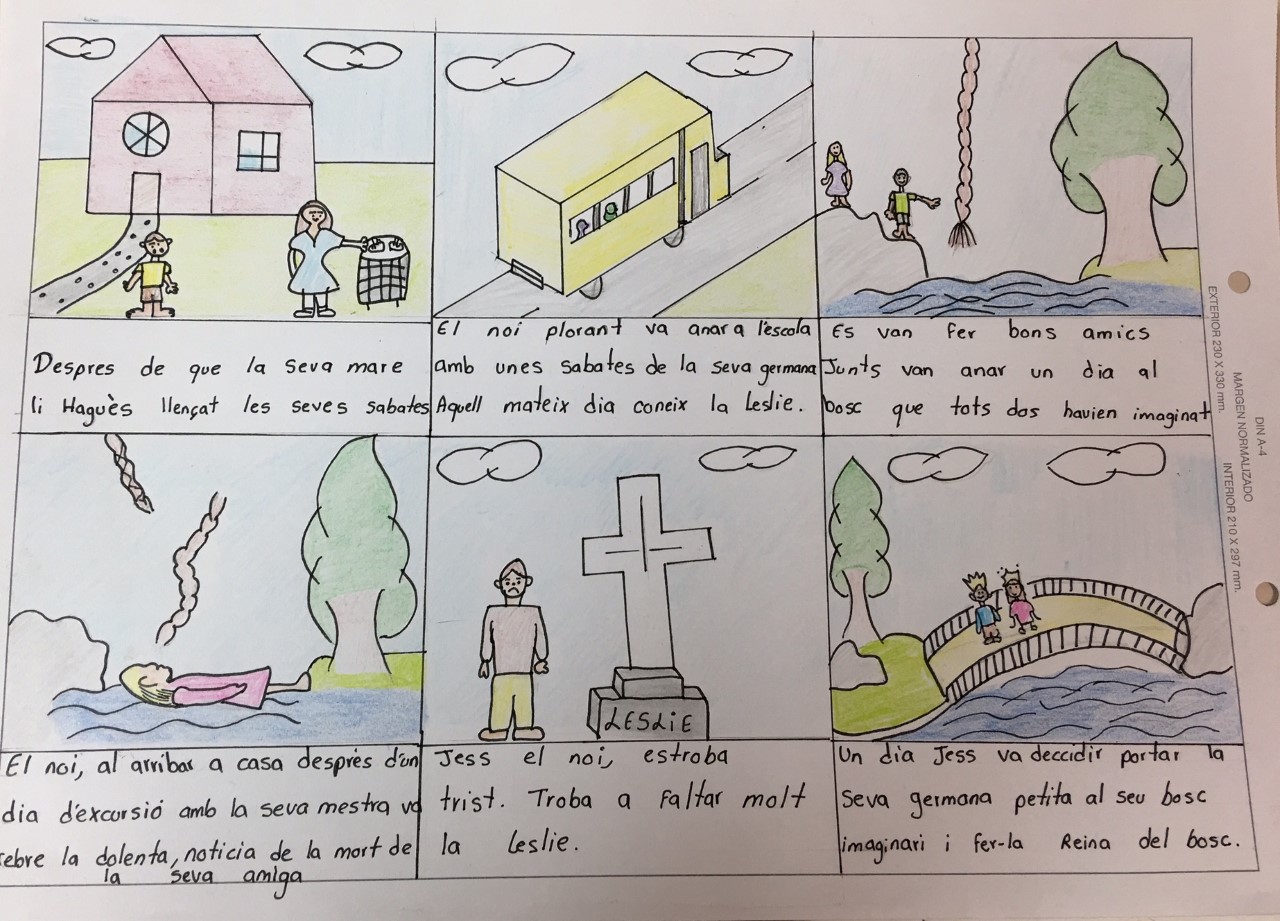 Despres de que la seva mare
li Haguès llençat les seves sabates
El noi plorant va anar a l'escola
amb unes sabates de la seva germana
Aquell mateix dia coneix la Leslie.
Es van fer bons amics
Junts van anar un dia al
bosc que tots dos havien imaginat
El noi, al arribar a casa desprès d'un
dia d'excursió amb la seva mestra va
rebre la dolenta, noticia de la mort de
la seva amiga
LESLiE
Jess el noi, estroba
trist. Troba a faltar molt
la Leslie.
Un dia Jess va deccidir portar la
Seva germana petita al seu bosc
imaginari i fer-la Reina del bosc.
EXTERIOR 230 X 330 mm.
MARGEN NORMALIZADO
DIN A-4
INTERIOR 210 X 297 mm.